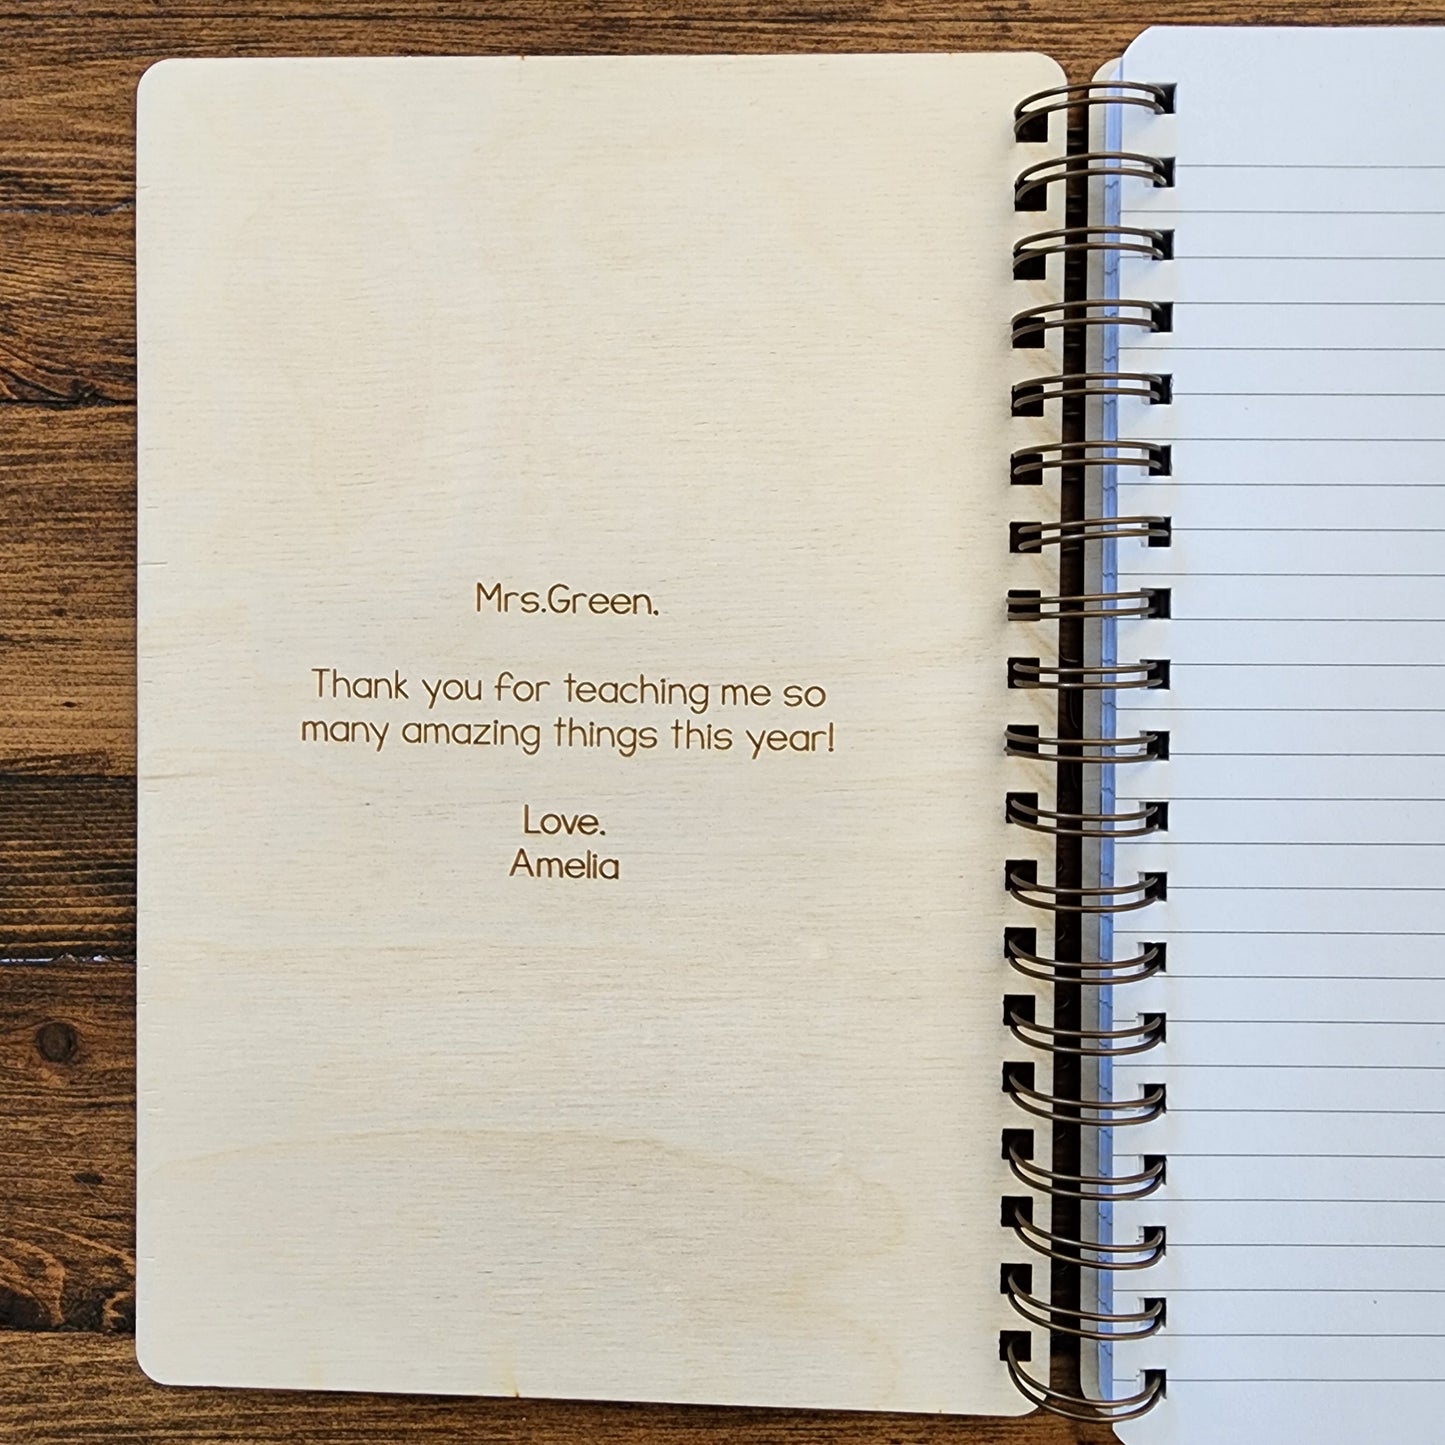 Mrs.Green.
Thank you for teaching me so
many amazing things this year!
Love.
Amelia